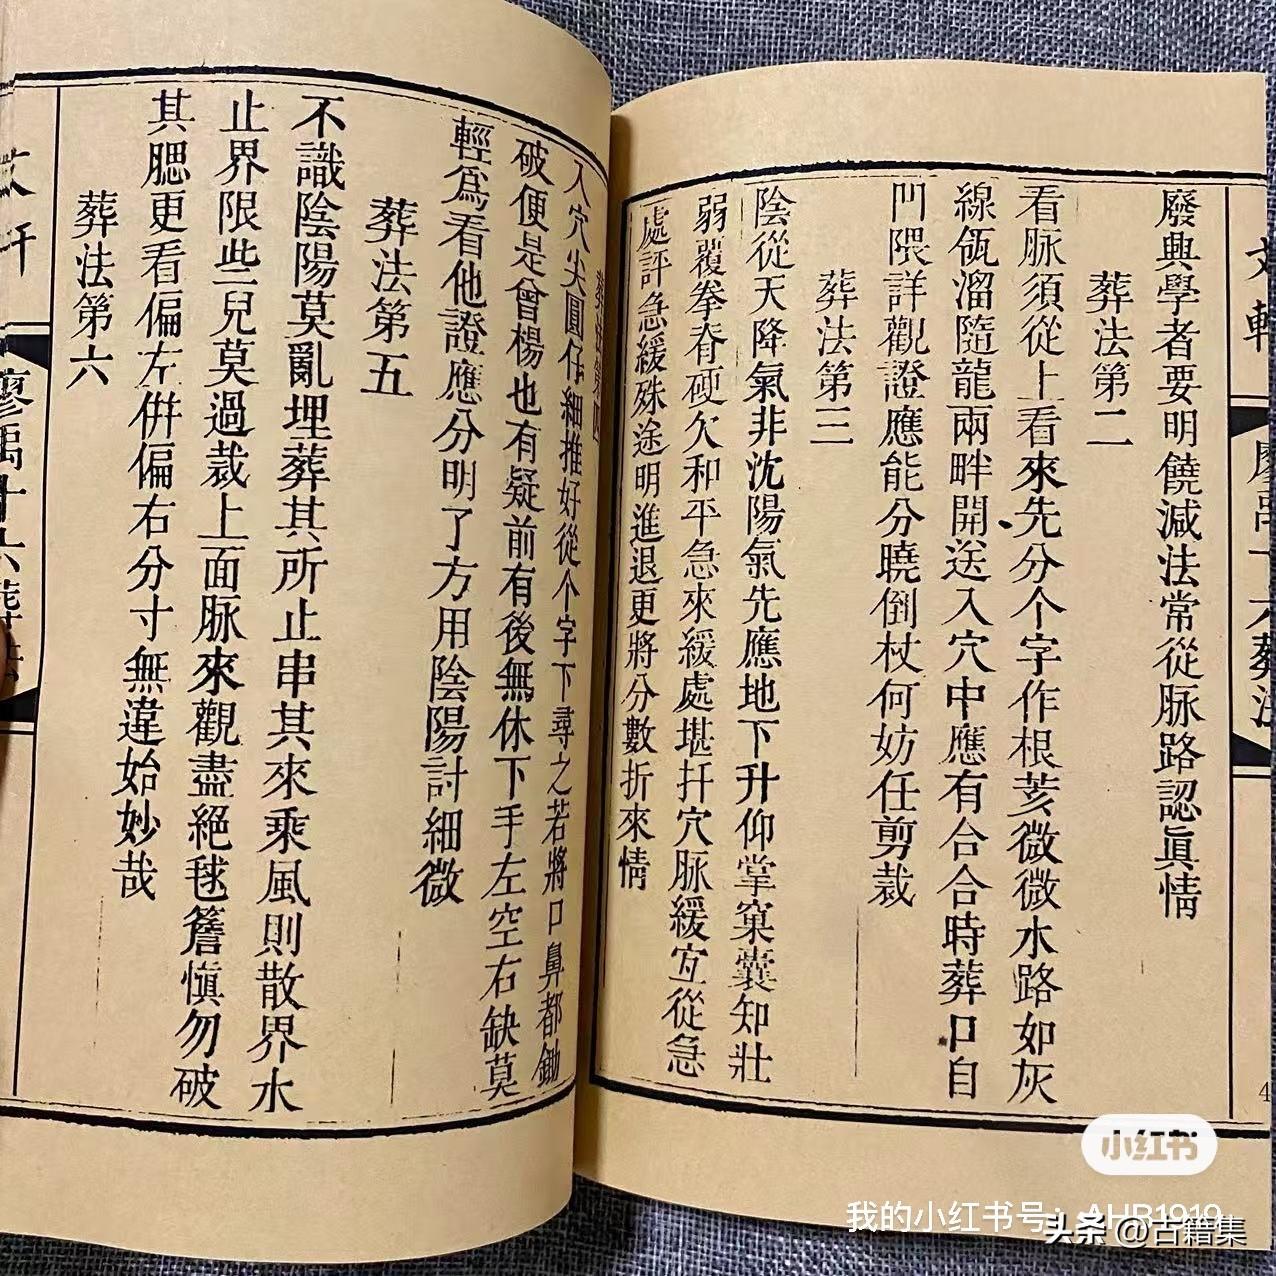 廢興學者要明饒減法常從脉路認眞情
葬法第二
看脉須從上看來先分个字作根荄微微水路如灰
線瓴溜隨龍兩畔開送入穴中應有合合時葬口自
凹隈詳觀證應能分曉倒杖何妨任剪裁
葬法第三
陰從天降氣非沈陽氣先應地下升仰掌窠囊知壯
弱覆拳脊硬欠和平急來緩處堪扦穴脉緩宜從急
處評急緩殊途明進退更將分數折來情
葬法第四
入穴尖圓仔細推好從个字下尋之若將口鼻都鋤
破便是曾楊也有疑前有後無休下手左空右缺莫
輕爲看他證應分明了方用陰陽討細微
葬法第五
不識陰陽莫亂埋葬其所止串其來乘風則散界水
止界限些兒莫過裁上面脉來觀盡絕毬簷愼勿破
其腮更看偏左倂偏右分寸無違始妙哉
葬法第六
廖禹十六葬法
小红书
我的小红书号：AHB1919
头条 @古籍集